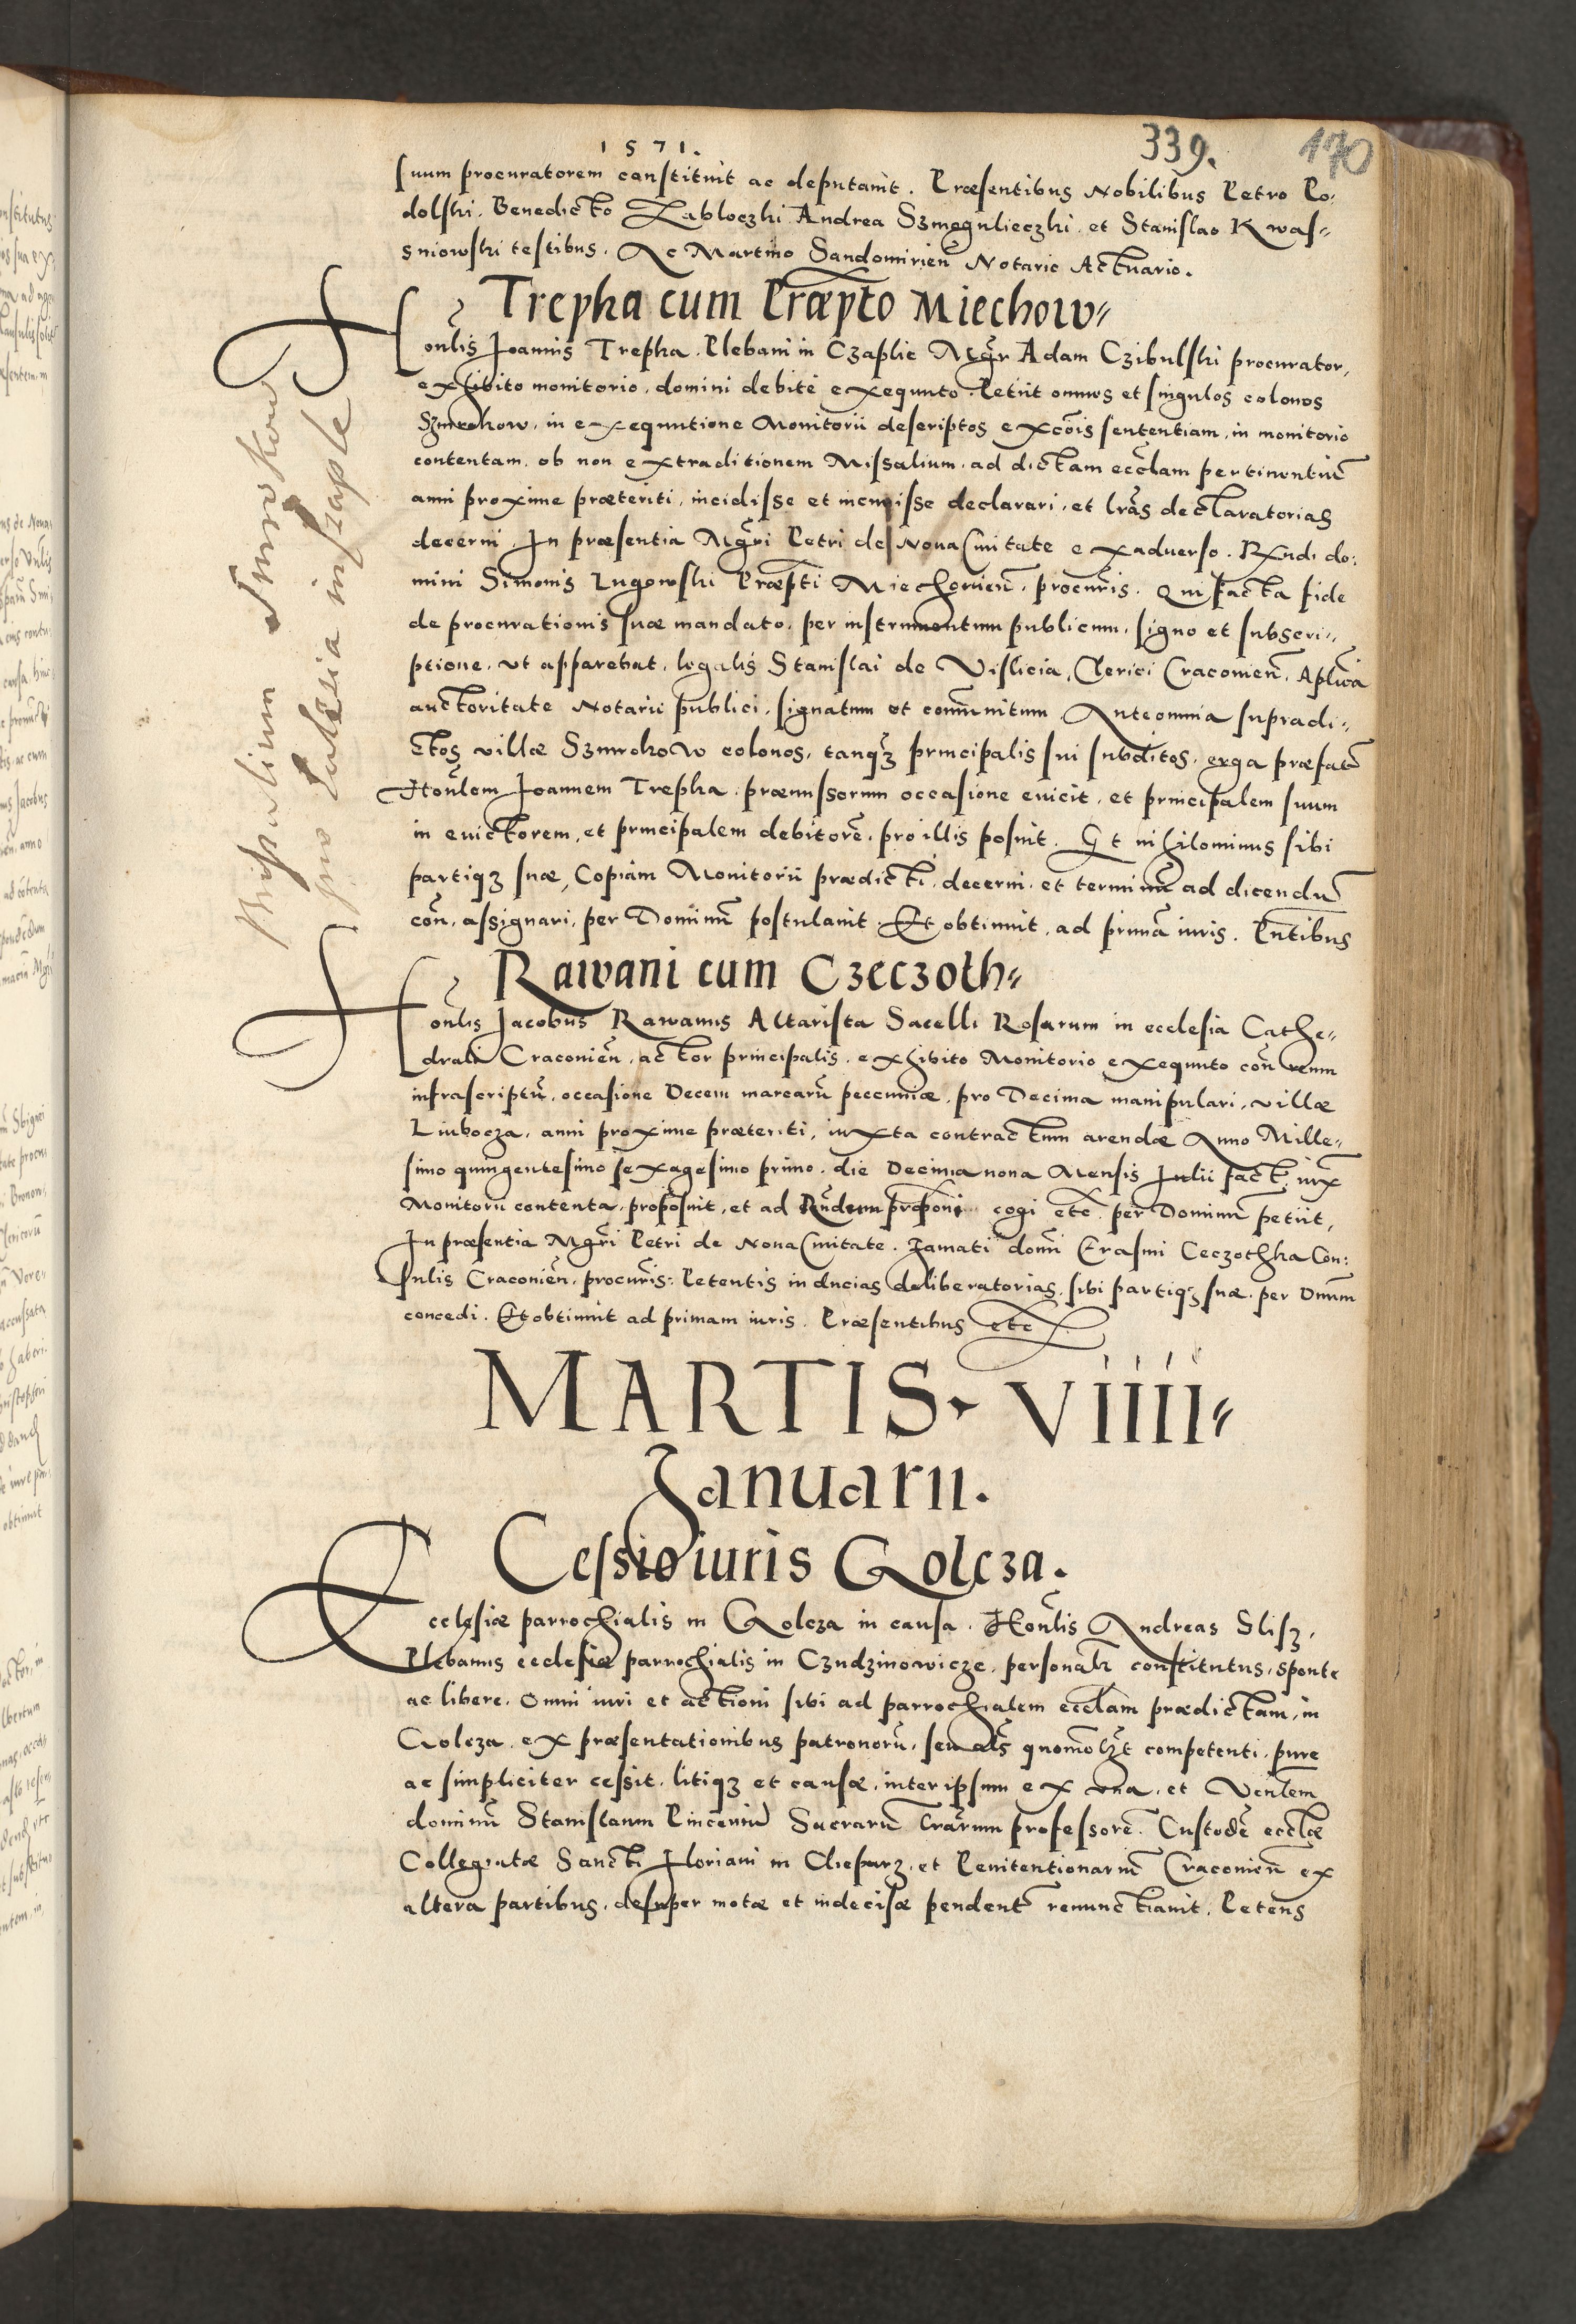 1571.
339.
170
suum procuratorem constituit ac deputauit. Præsentibus Nobilibus Petro Po-
dolski, Benedicto Zabloczki Andrea Szmogulieczki, et Stanislao Kwas-
sniowski testibus. Ac Martino Sandomirien̄ Notario Actuario.
Trepka cum Præpto Miechow-
Honlis Joannis Trepka. Plebani in Czaplie Mgr Adam Czibulski procurator,
exhibito monitorio, domini debite exequuto. Petiit omnes et singulos colonos
Szmrokow, in exequutione Monitorii descriptos excōis sententiam, in monitorio
contentam, ob non extraditionem Missalium, ad dictam eccl̄am pertinentiū
anni proxime præteriti, incidisse et incurrisse declarari, et lrās declaratorias
decerni. In præsentia Mgri Petri de Noua Ciuitate ex aduerso. Rxndi do:
mini Simonis Lugowski Præpti Miechouien̄. procuris. Qui facta fide
de procurationis suæ mandato, per instrumentum publicum, signo et subscri-
ptione, vt apparebat, legalis Stanislai de Vislicia, Clerici Cracouien̄. Aplica
auctoritate Notarii publici, signatum et communitum. Ante omnia supradi-
ctos villæ Szmrokow colonos, tanq̄ʒ principalis sui subditos, erga præfatū
Honlem Joannem Trepka, præmissorum occasione euicit, et principalem suum
in euictorem, et principalem debitorē, pro illis posuit. Et nihilominus sibi
partiqʒ suæ, Copiam Monitorii prædicti, decerni, et terminū ad dicendū
cōn, assignari, per Dominū postulauit. Et obtinuit, ad primā iuris. Pntibus
Missalium Smrokow
pro Ecclesia in Czaple
Rawani cum Czeczoth-
Honlis Jacobus Rawanus Altarista Sacelli Rosarum in ecclesia Cathe-
drali Cracouien̄, actor principalis, exhibito Monitorio exequuto cōn reum
infrascriptū, occasione Decem marcarū peccuniæ, pro Decima manipulari, villæ
Liubocza, anni proxime præteriti, iuxta contractum arendæ Anno Mille-
simo quingentesimo sexagesimo primo, die Decima nona Mensis Julii fact, iux
Monitorii contenta, proposuit, et ad Rndum præponi cogi etc. per Dominū petiit,
In præsentia Mgri Petri de Noua Ciuitate. Famati domi Erasmi Ceczothka Con:
sulis Cracouien̄, procuris: Petentis inducias deliberatorias, sibi partiqʒ suæ, per Dnum
concedi. Et obtinuit ad primam iuris. Præsentibus etc.
MARTIS. VIIII-
Januarii.
Cessio iuris Golcza.
Ecclesiæ parrochialis in Golcza in causa. Honlis Andreas Slisz,
Plebanus ecclesiæ parrochialis in Czudzinowicze, personalr constitutus, sponte
ac libere, Omni iuri et actioni sibi ad parrochialem eccl̄am prædictam, in
Golcza, ex præsentationibus patronorū, seu als quomolʒt competenti, pure
ac simpliciter cessit, litiqʒ et causæ, inter ipsum ex vna, et Venlem
dominū Stanislaum Pinczouiū Sacrarū lrarum professorē. Custodē eccl̄æ
Collegiatæ Sancti Floriani in Cleparz, et Penitentionariū Cracouien̄ ex
altera partibus, desuper motæ et indecisæ pendentī renunctiauit. Petens